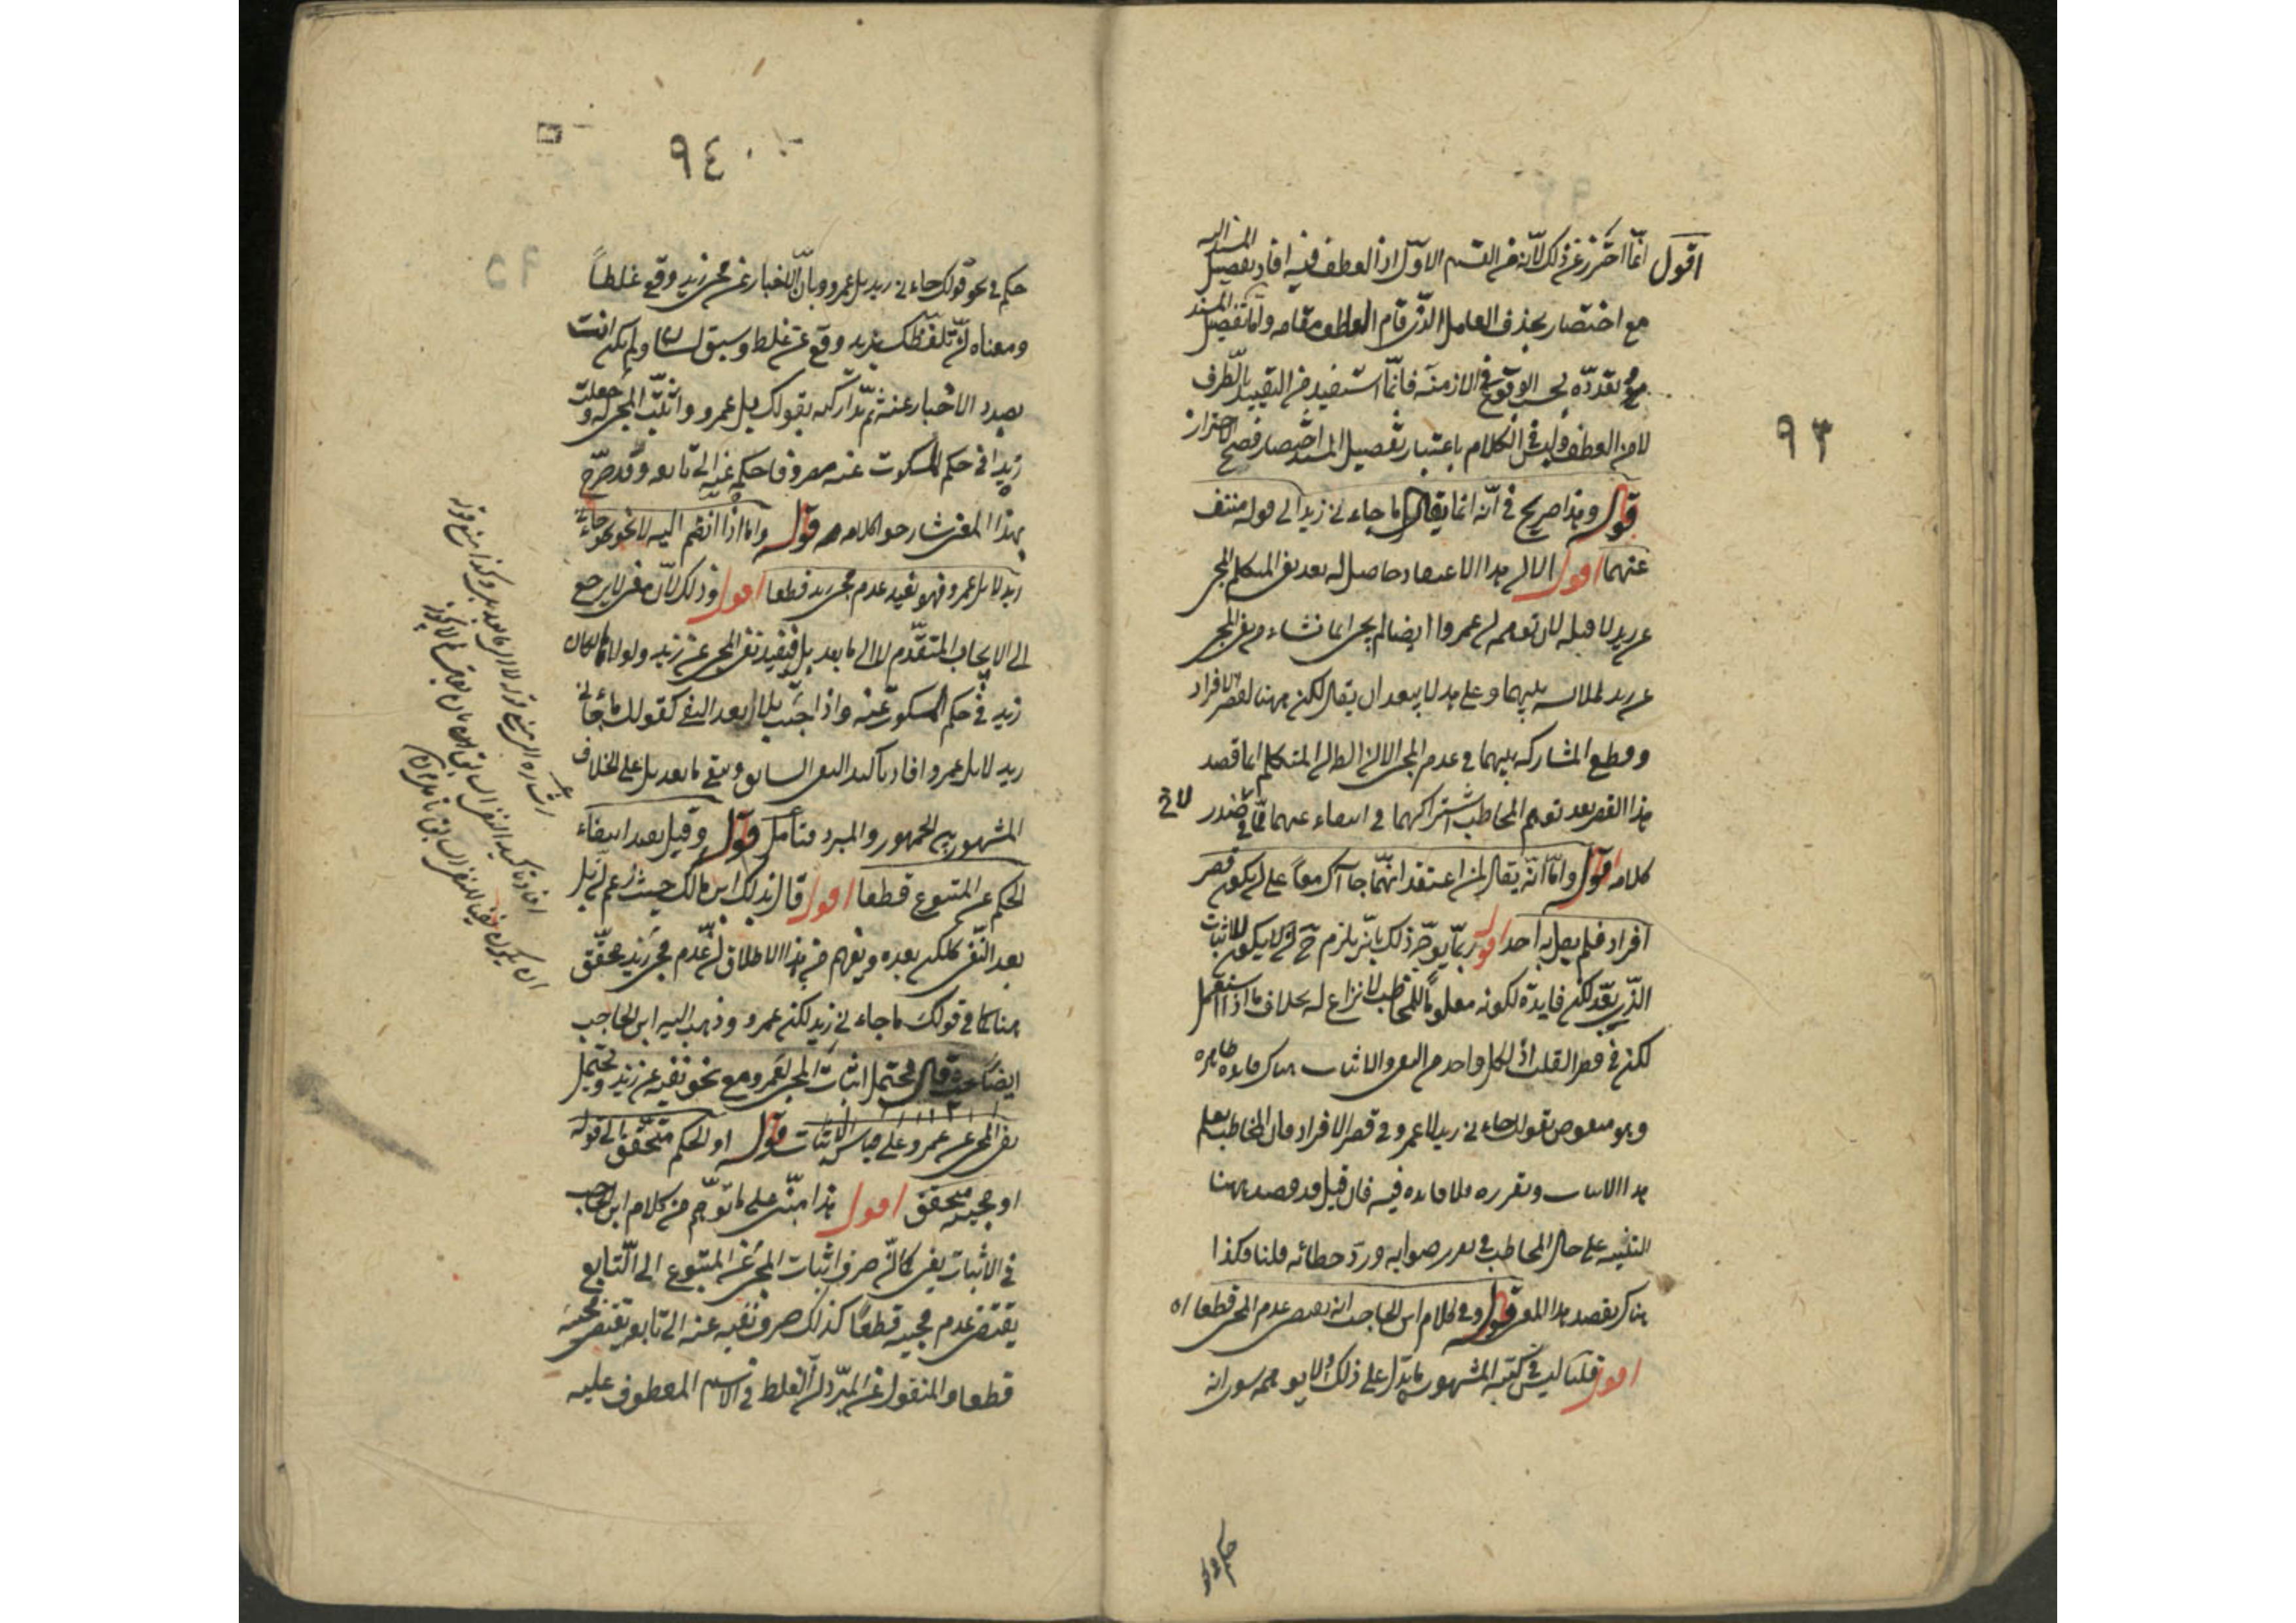 ٩٣
اقول انما احترز عن ذلك لانه من القسم الاول اذ العطف فيه افاد تفصيل المسند اليه
مع اختصار بحذف العامل الذى قام العاطف مقامه واما تفصيل المسند
بمعنى تعدده بحسب الوقوع فى الازمنة فانما استفيد من التقييد بالظرف
لا من العطف وليس فى الكلام باعتبار تفصيل المسند اختصار فصح الاحتراز
قوله وهذا صريح فى انه انما يقال ما جاءنى زيد الى قوله منتف
عنهما اقول الا ان هذا الاعتقاد حاصل له بعد نفى المتكلم المجى
عن زيد لا قبله لان توهمه ان عمروا ايضا لم يجى انما نشاء من نفى المجى
عن زيد لملابسة بينهما وعلى هذا لا يبعد ان يقال لكن ههنا لقصر الافراد
وقطع المشاركة بينهما فى عدم المجى الا ان الظاهر ان المتكلم انما قصد
هذا القصر بعد توهم المخاطب اشتراكهما فى انتفاء عنهما فى صدر
كلامه قوله واما انه يقال لمن اعتقد انهما جاآك معا على ان يكون قصر
افراد فلم يقل به احد اقول ربما يوجه ذلك بانه يلزم ح ان لا يكون للاثبات
الذى بعد لكن فايدة لكونه معلوما للمخاطب لا نزاع له بخلاف ما اذا استعمل
لكن فى قصر القلب اذ لكل واحد من النفى والاثبات هناك فايدة ظاهرة
وهو منقوض بقولك جاءنى زيد لا عمرو فى قصر الافراد فان المخاطب يعلم
هذا الاثبات وتقرره فلا فايدة فيه فان قيل قد قصد ههنا
التنبيه على حال المخاطب فى تقرر صوابه ورد خطائه قلنا فكذا
هناك يقصد هذا المعنى قوله وفى كلام ابن الحاجب انه يقتضى عدم المجى قطعا اه
اقول قلنا ليس فى كتبه المشهورة ما يدل على ذلك
٩٤
حكم فى نحو قولك جاءنى زيد بل عمرو وبان الاخبار عن مجى زيد وقع غلطا
ومعناه ان تلفظك بزيد وقع عن غلط وسبق لسان ولم تكن انت
بصدد الاخبار عنه ثم تداركه بقولك بل عمرو واثبت المجى له وجعلت
زيدا فى حكم المسكوت عنه مصروفا حكم عنه الى تابعه وقد صرح
بهذا المعنى شارحوا كلامه قوله واما اذا انضم اليه لا نحو جاءنى
زيد لا بل عمرو فهو يفيد عدم مجى زيد قطعا اقول وذلك لان معنى لا يرجع
الى الايجاب المتقدم لا الى ما بعد بل فيفيد نفى المجى عن زيد ولو لا كان
زيد فى حكم المسكوت عنه واذا جئت بلا بعد النفى كقولك ما جاءنى
زيد لا بل عمرو افاد تأكيد النفى السابق وبقى ما بعد بل على الخلاف
المشهور بين الجمهور والمبرد فتأمل قوله وقيل يفيد انتفاء
الحكم عن المتبوع قطعا اقول قال بذلك ابن مالك حيث زعم ان بل
بعد النفى كلكن بعده ويفهم من هذا الاطلاق ان عدم مجى زيد محقق
هنا كما فى قولك ما جاءنى زيد لكن عمرو وذهب اليه ابن الحاجب
ايضا حيث قال يحتمل اثبات المجى لعمرو مع نحو نفيه عن زيد ويحتمل
نفى المجى عن عمرو على قياس الاثبات قوله او الحكم متحقق الى قوله
او مجيه متحقق اقول هذا مبنى على ما توهم من كلام ابن الحاجب
فى الاثبات يعنى كما ان صرف اثبات المجى عن المتبوع الى التابع
يقتضى عدم مجيه قطعا كذلك صرف نفيه عنه الى تابعه يقتضى مجيه
قطعا والمنقول عن المبرد ان الغلط فى الاسم المعطوف عليه